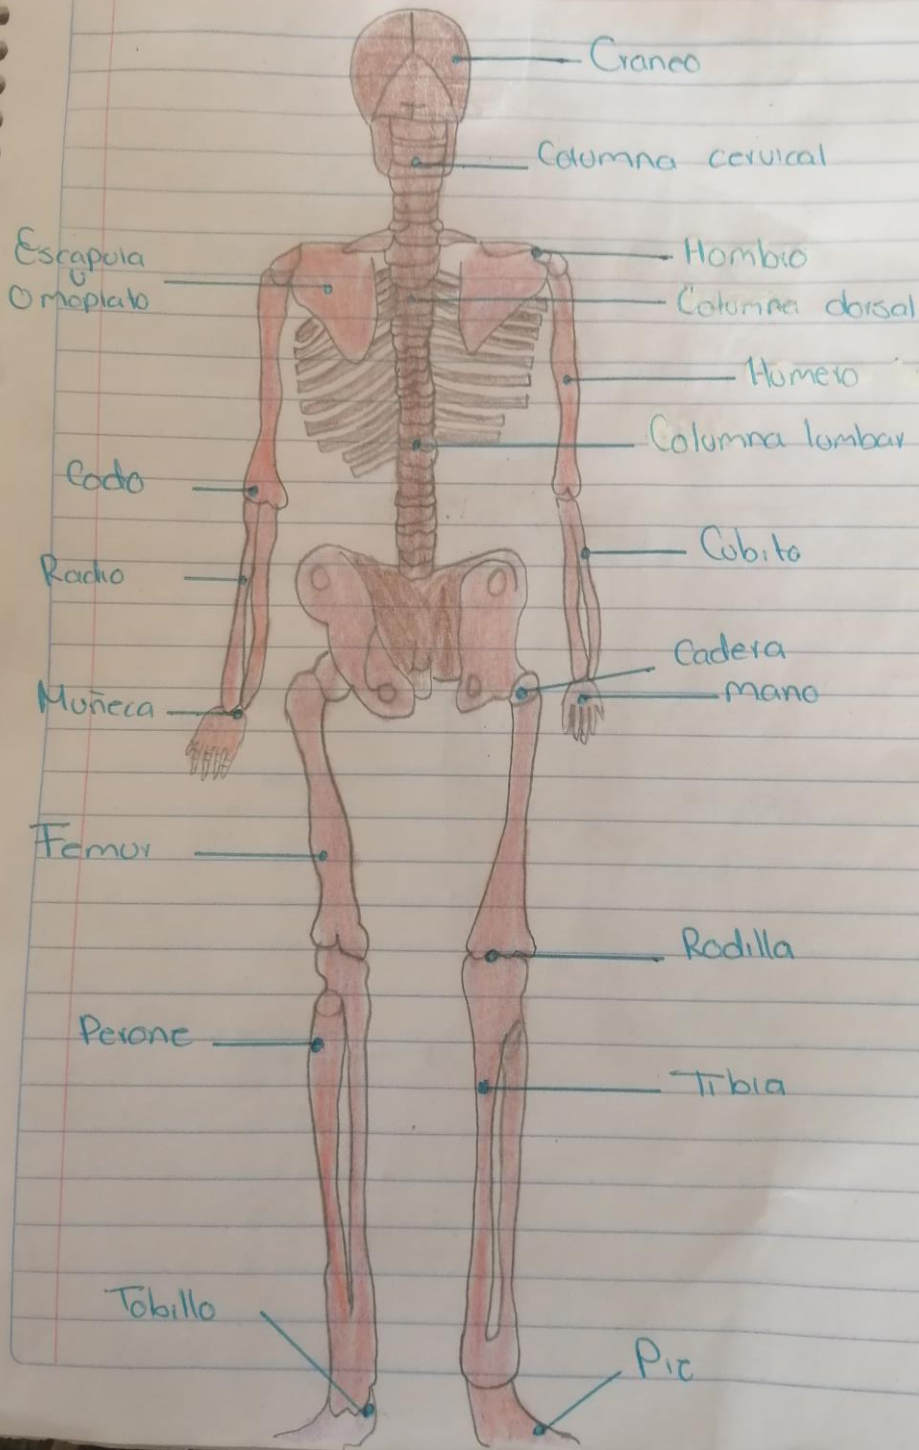 Craneo
Columna cervical
Escapula
U
Omoplato
Hombro
Columna dorsal
Humero
Columna lumbar
Codo
Cubito
Radio
Cadera
mano
Muñeca
Femur
Rodilla
Perone
Tibia
Tobillo
Pie